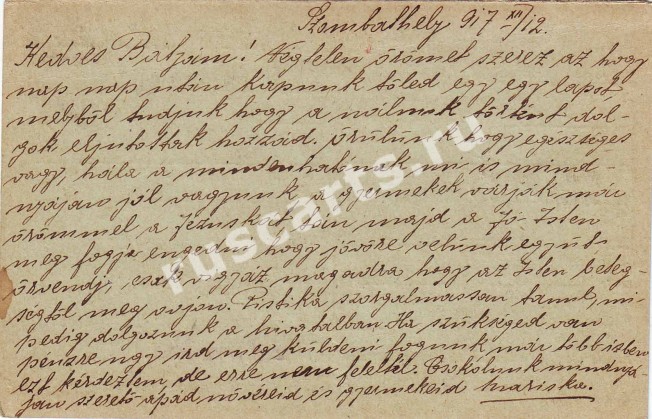 Szombathely 917 XII/12.
Kedves Bátyám! Végtelen örömet szerez az hogy
nap nap után kapunk tőled egy egy lapot
melyből tudjuk hogy a nálunk történt dol-
gok eljutottak hozzád. örülünk hogy egészséges
vagy, hála a mindenhatónak mi is mind-
nyájan jól vagyunk a gyermekek várják már
örömmel a Jézuskát tán majd a Jó Isten
meg fogja engedni hogy jövőre velünk együtt
örvendj, csak vigyáz magadra hogy az Isten beteg-
ségtől meg óvjon. Pistika szorgalmassan tanul, mi
pedig dolgozunk a hivatalban. Ha szükséged van
pénzre ugy ird meg küldeni fogunk már több izben
ezt kérdeztem de erre nem feleltél. Csokolunk mindnyá-
jan szerető apád nővéreid és gyermekeid Mariska.
ruscards.ru